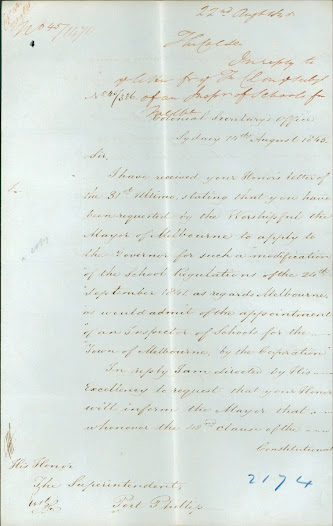 No 45/1470
22nd Augt 1843
The Col Sec
In reply to
a letter for
of an Inspr of Schools for
Colonial Secretary's Office
Sydney 14th August 1843.
Sir,
I have received your Honor's letter of
the 31st Ultimo, stating that you have
been requested by the Worshipful the
Mayor of Melbourne to apply to
the Governor for such a "modification
"of the School Regulations of the 24th
"September 1841 as regards Melbourne,
as would admit of the appointment
"of an Inspector of Schools for the
"Town of Melbourne, by the Corporation"
In reply I am directed by His
Excellency to request that your Honor
will inform the Mayor that
whenever the clause of the
Constitutional
His Honor
The Superintendent
Port Phillip
2174